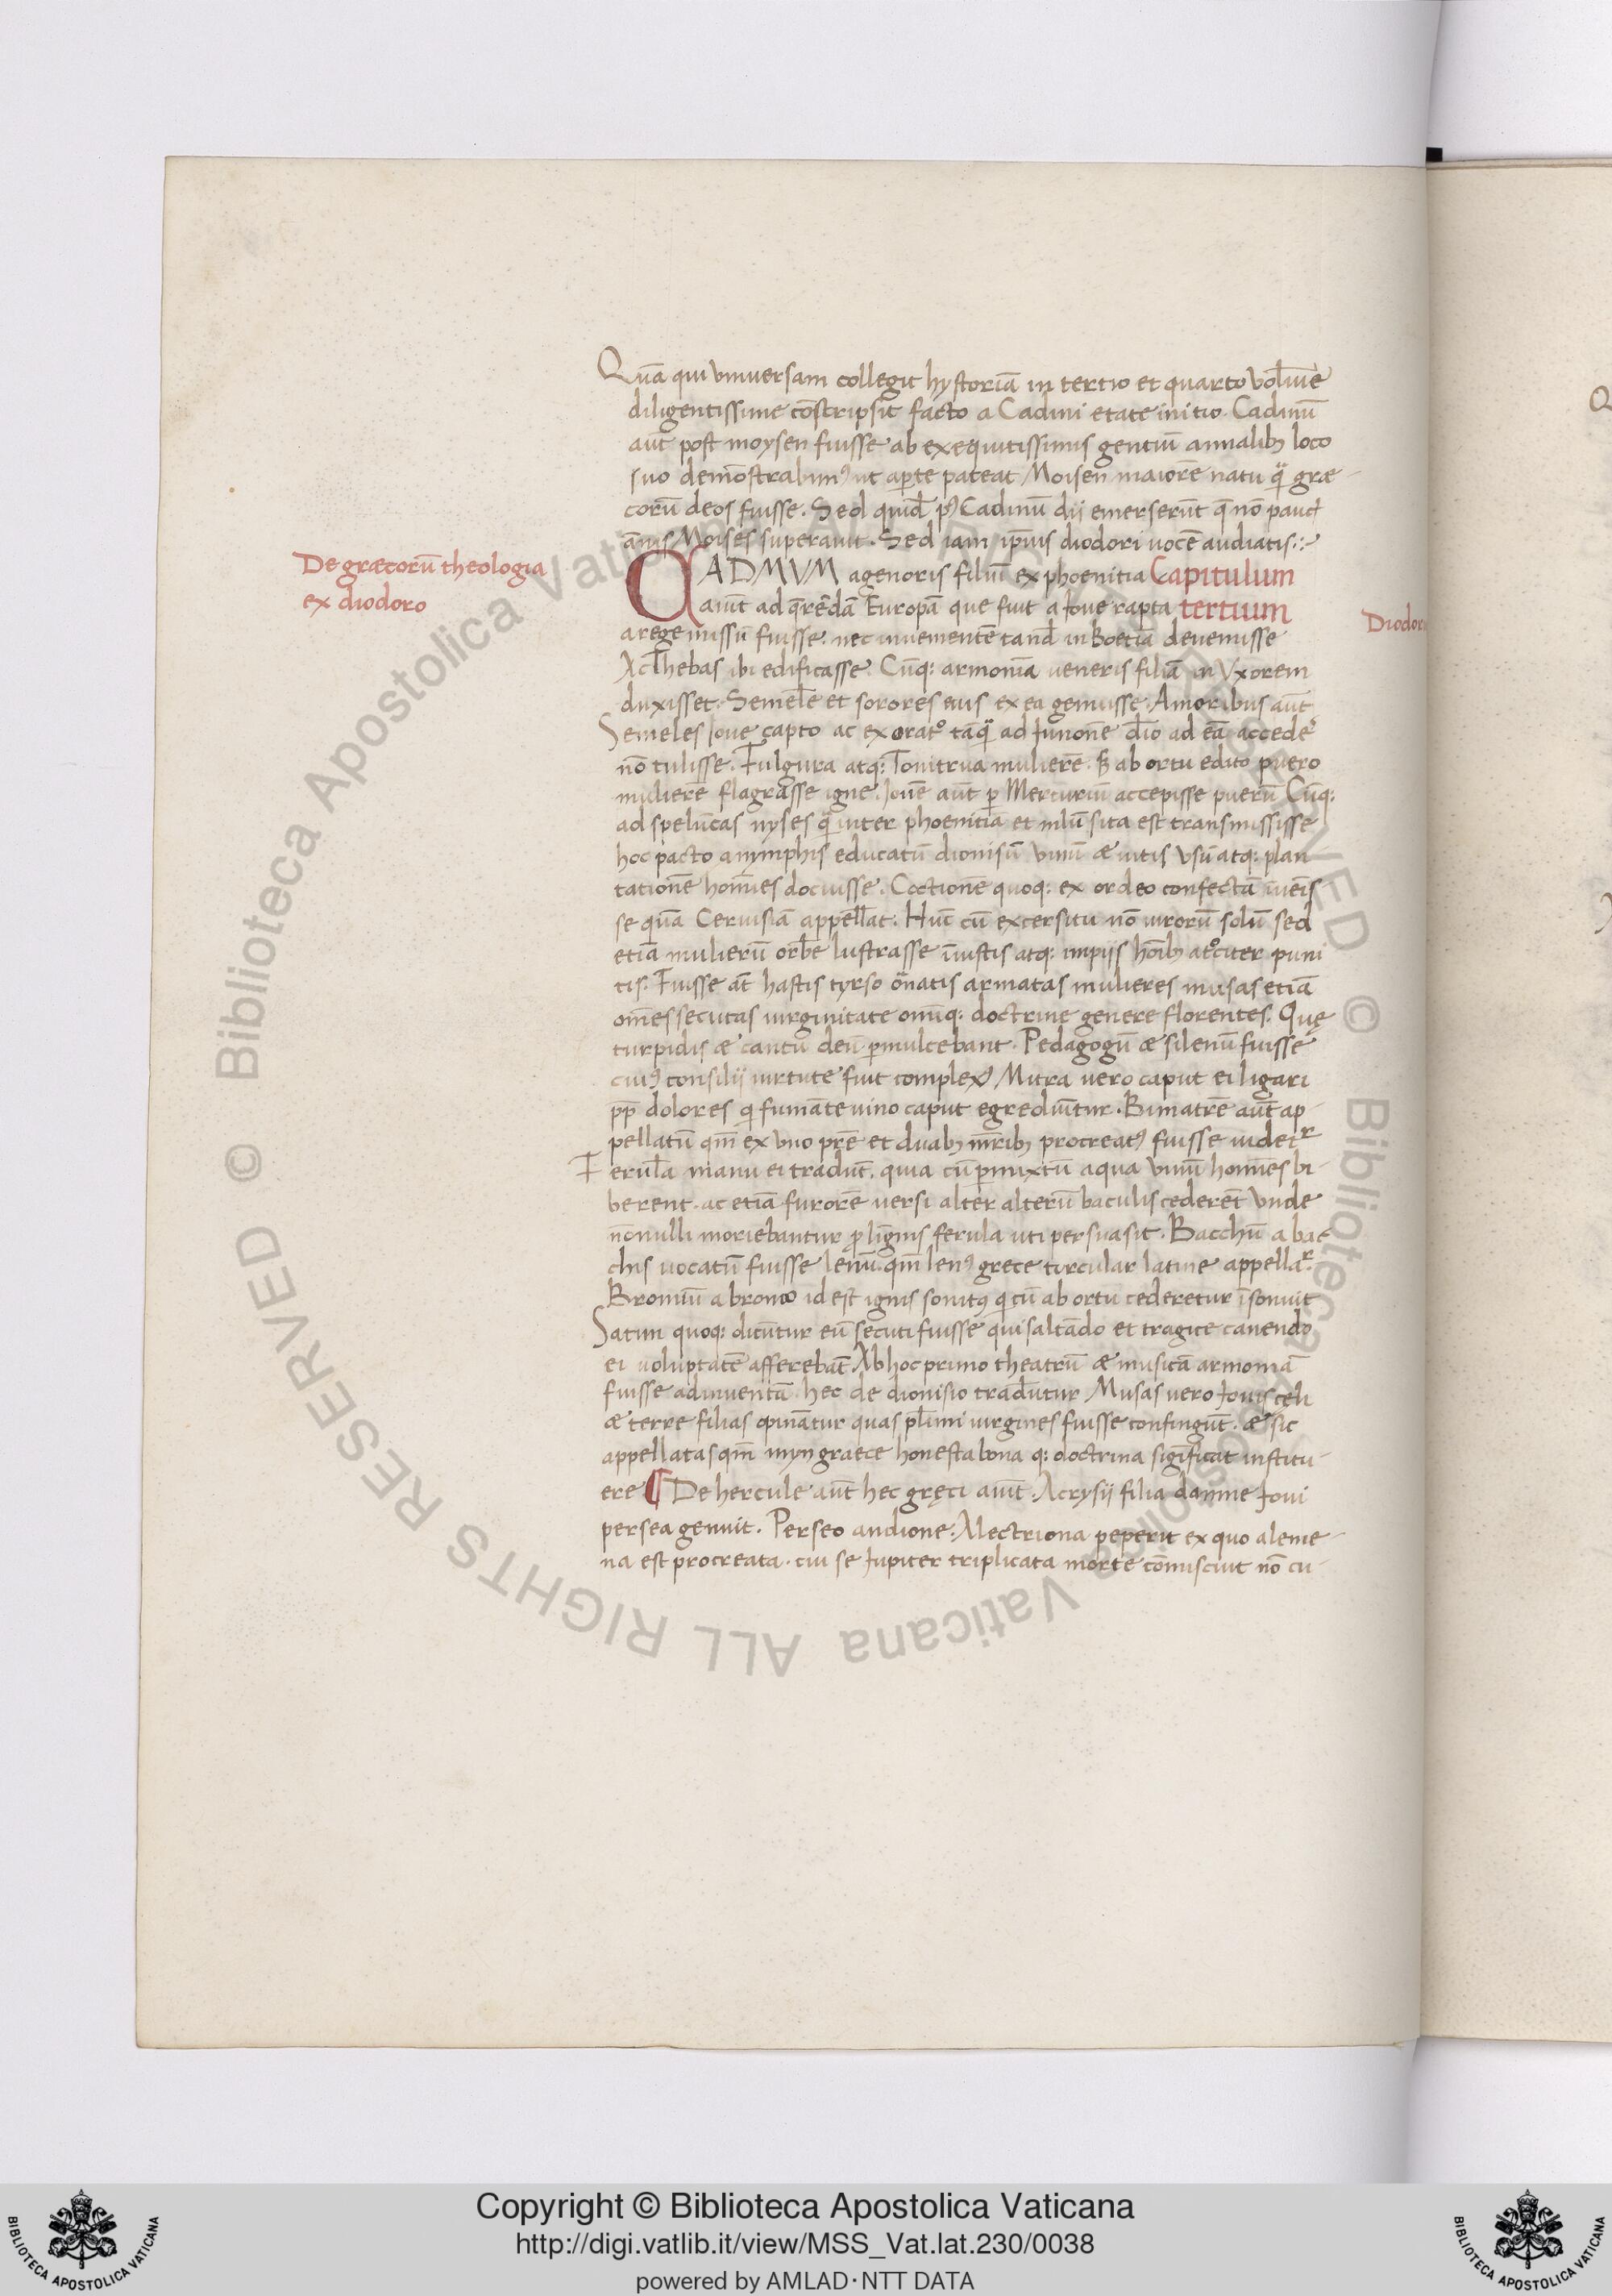 Quā qui vniuersam collegit hystoriā in tertio et quarto vol̄ie
diligentissime cōscripsit facto a Cadini etate initio. Cadinū
aūt post moysen fuisse ab exequitissimis gentiū annalib; loco
suo demōstrabimꝰ ut aperte pateat Moisen maiorē natu q̈ græ-
corū deos fuisse. Sed quid̄ pꝰ Cadinū dij emerserūt q̄ nō pauci
ānis Moises superauit. Sed iam ip̄ius diodori uocē audiatis:
De græcorū theologia
ex diodoro
CADMVM agenoris filiū ex phoenitia Capitulum
aiūt ad q̄rēdā Europā que fuit a Ioue rapta tertium
a rege missū fuisse. nec inuementē tand̄ in Boetia deuenisse
Ac Thebas ibi edificasse. Cūq: armoniā ueneris filiā in Vxorem
duxisset. Semele et sorores eius ex ea genuisse. Amoribus aūt
Semeles Ioue capto ac exoratͦ tāq̈ ad Iunonē d̄io ad eā accede
nō tulisse. Fulgura atq: Tonitrua mulierē. S; ab ortu edito puero
mulierē flagrasse igne. Iouē aūt p Mercuriū accepisse puerū Cūq:
ad spelūcas nyses q̄ inter phoenitia et nilū sita est transmississe
hoc pacto a nymphis educatū dionisū vinū æ uitis vsū atq: plan-
tationē homīes docuisse. Coctionē quoq: ex ordeo confectā īueīs
se quā Ceruisiā appellāt. Hūc cū excersitu nō uirorū solū sed
etiā mulierū orbē lustrasse īiustis atq: impijs hōib; atͦciter puni
tis. Fuisse āt hastis tyrso ornatis armatas mulieres musas etiā
om̄es secutas uirginitate omīq: doctrine genere florentes. Quę
turpidis æ cantu deū pmulcebant. Pedagogū æ silenū fuisse
cuiꝰ consilij uirtute fuit complexꝰ Mitra uero caput ei ligari
pp̄ dolores q fumāte uino caput egrediūtur. Bimatrē aūt ap-
pellatū qm̄ ex vno pr̄e et duab; mr̄ib; procreatꝰ fuisse uidetr
Ferula manu ei tradūt. quia cū pmixtū aqua vinū homīes bi-
berent. ac etiā furorē uersi alter alterū baculis cederēt vnde
nōnulli moriebantur p līgnis ferula uti persuasit. Bacchū a bac
chis uocatū fuisse lenū. qm̄ lenꝰ grece torcular latine appellar.
Bromiū a bronto id est ignis sonitꝰ q cū ab ortu cederetur īsonuit
Satiri quoq: dicūtur eū secuti fuisse qui saltādo et tragice canendo
ei uoluptatē afferebāt Ab hoc primo theatrū æ musicā armoniā
fuisse adinuentā. hec de dionisio tradūtur Musas uero Iouis celi
æ terre filias opināntur quas pl̄imi uirgines fuisse confingūt. æ sic
appellatas qm̄ myn graece honesta bona q: doctrina significat institu-
ere ¶ De hercule aūt hec gręci aiūt. Acrysij filia damne Ioui
persea genuit. Perseo andione. Alectriona peperit ex quo aleme-
na est procreata. cui se Iupiter triplicata morte cōmiscuit nō cu-
Diodor
Copyright © Biblioteca Apostolica Vaticana
http://digi.vatlib.it/view/MSS_Vat.lat.230/0038
powered by AMLAD·NTT DATA
BIBLIOTECA APOSTOLICA VATICANA
BIBLIOTECA APOSTOLICA VATICANA
© Biblioteca Apostolica Vaticana ALL RIGHTS RESERVED
© Biblioteca Apostolica Vaticana ALL RIGHTS RESERVED